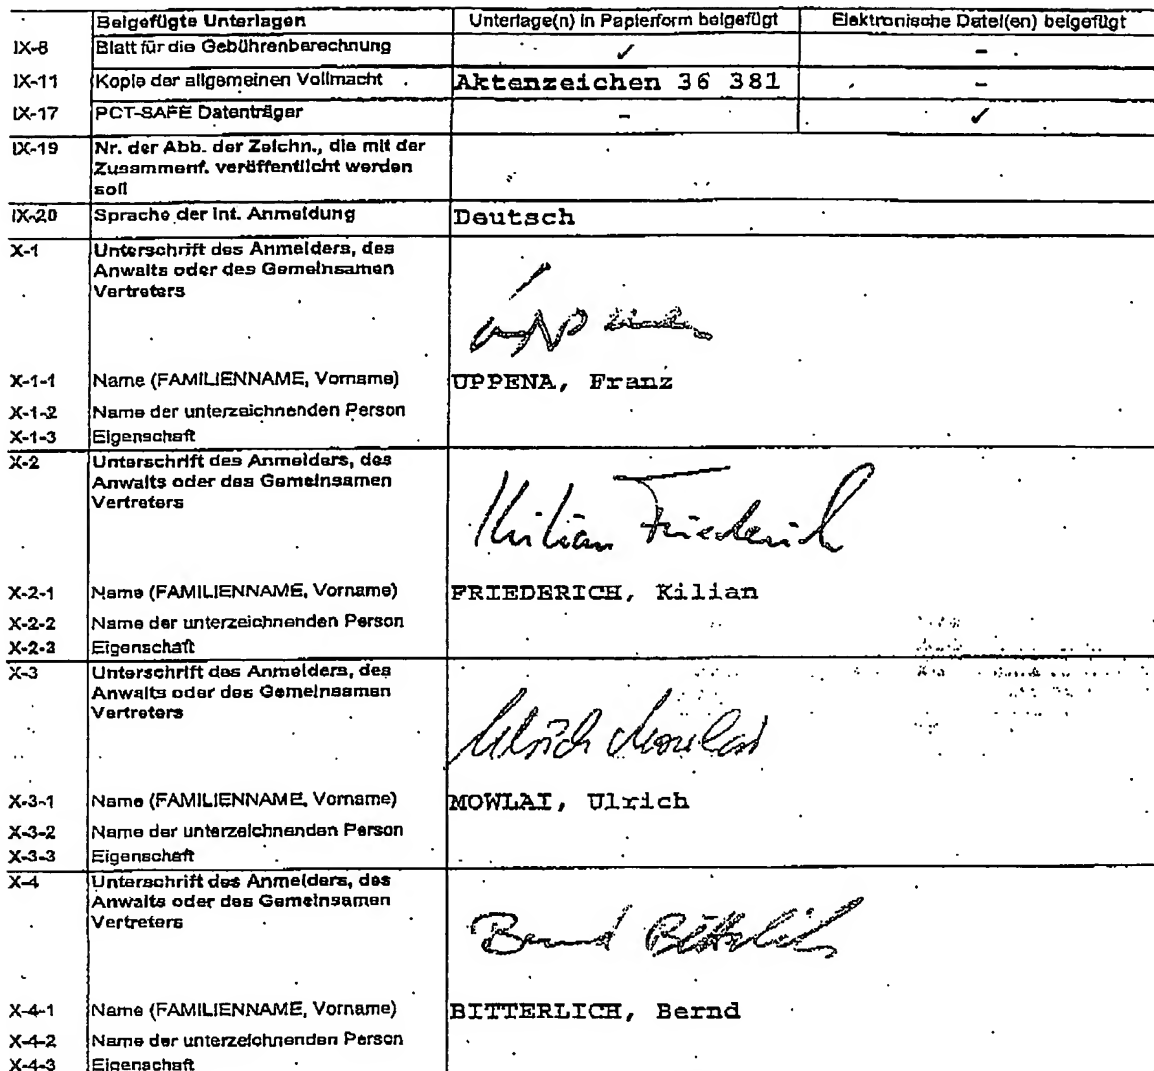 Beigefügte Unterlagen Unterlage(n) in Papierform beigefügt Elektronische Datei(en) beigefügt
IX-8 Blatt für die Gebührenberechnung ✓ -
IX-11 Kopie der allgemeinen Vollmacht Aktenzeichen 36 381 -
IX-17 PCT-SAFE Datenträger - ✓
IX-19 Nr. der Abb. der Zeichn., die mit der
Zusammenf. veröffentlicht werden
soll
IX-20 Sprache der Int. Anmeldung Deutsch
X-1 Unterschrift des Anmelders, des
Anwalts oder des Gemeinsamen
Vertreters
X-1-1 Name (FAMILIENNAME, Vorname) UPPENA, Franz
X-1-2 Name der unterzeichnenden Person
X-1-3 Eigenschaft
X-2 Unterschrift des Anmelders, des
Anwalts oder des Gemeinsamen
Vertreters
Kilian Friederich
X-2-1 Name (FAMILIENNAME, Vorname) FRIEDERICH, Kilian
X-2-2 Name der unterzeichnenden Person
X-2-3 Eigenschaft
X-3 Unterschrift des Anmelders, des
Anwalts oder des Gemeinsamen
Vertreters
Ulrich Mowlai
X-3-1 Name (FAMILIENNAME, Vorname) MOWLAI, Ulrich
X-3-2 Name der unterzeichnenden Person
X-3-3 Eigenschaft
X-4 Unterschrift des Anmelders, des
Anwalts oder des Gemeinsamen
Vertreters
Bernd Bitterlich
X-4-1 Name (FAMILIENNAME, Vorname) BITTERLICH, Bernd
X-4-2 Name der unterzeichnenden Person
X-4-3 Eigenschaft